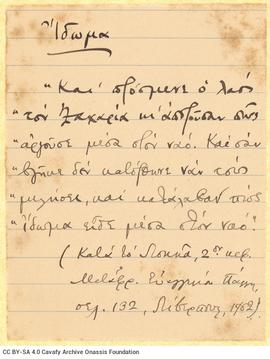 Ἴδωμα
"Καὶ πρόσμενε ὁ λαὸς
"τὸν Ζαχαρία κι' ἀποροῦσαν πῶς
"ἀργοῦσε μέσα στὸν ναό. Καὶ σὰν
"βγῆκε δὲν κατόρθωνε νὰν τοὺς
"μιλήσει, καὶ κατάλαβαν πῶς
"ἴδωμα εἶδε μέσα στὸν ναό."
(Κατὰ τὸ Λουκᾶ, 2ον κεφ.
Μετάφρ. Πάλλη,
σελ. 132, Λίβερπουλ, 1902)
CC BY-SA 4.0 Cavafy Archive Onassis Foundation